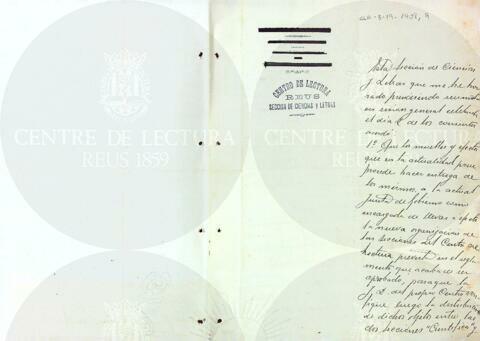 CENTRE DE LECTURA
REUS 1859
CENTRO DE LECTURA
REUS
SECCIÓN DE CIENCIAS Y LETRAS
CENTRE DE LECTURA
REUS 1859
Esta Sección de Ciencias
y Letras que me he hon
rado presidiendo reunida
en sesión general celebrada
el día 2 de los corrientes
1º Que los muebles y efectos
que en la actualidad posee
procede hacer entrega de
los mismos, a la actual
Junta de Gobierno como
encargada de llevar a efecto
la nueva organización de
las Secciones del Centro de
Lectura en el regla
mento que acaba de ser
aprobado, para que la
J. D. del propio Centro
luego la distribución
de dichos objetos entre las
dos secciones "Científica" y